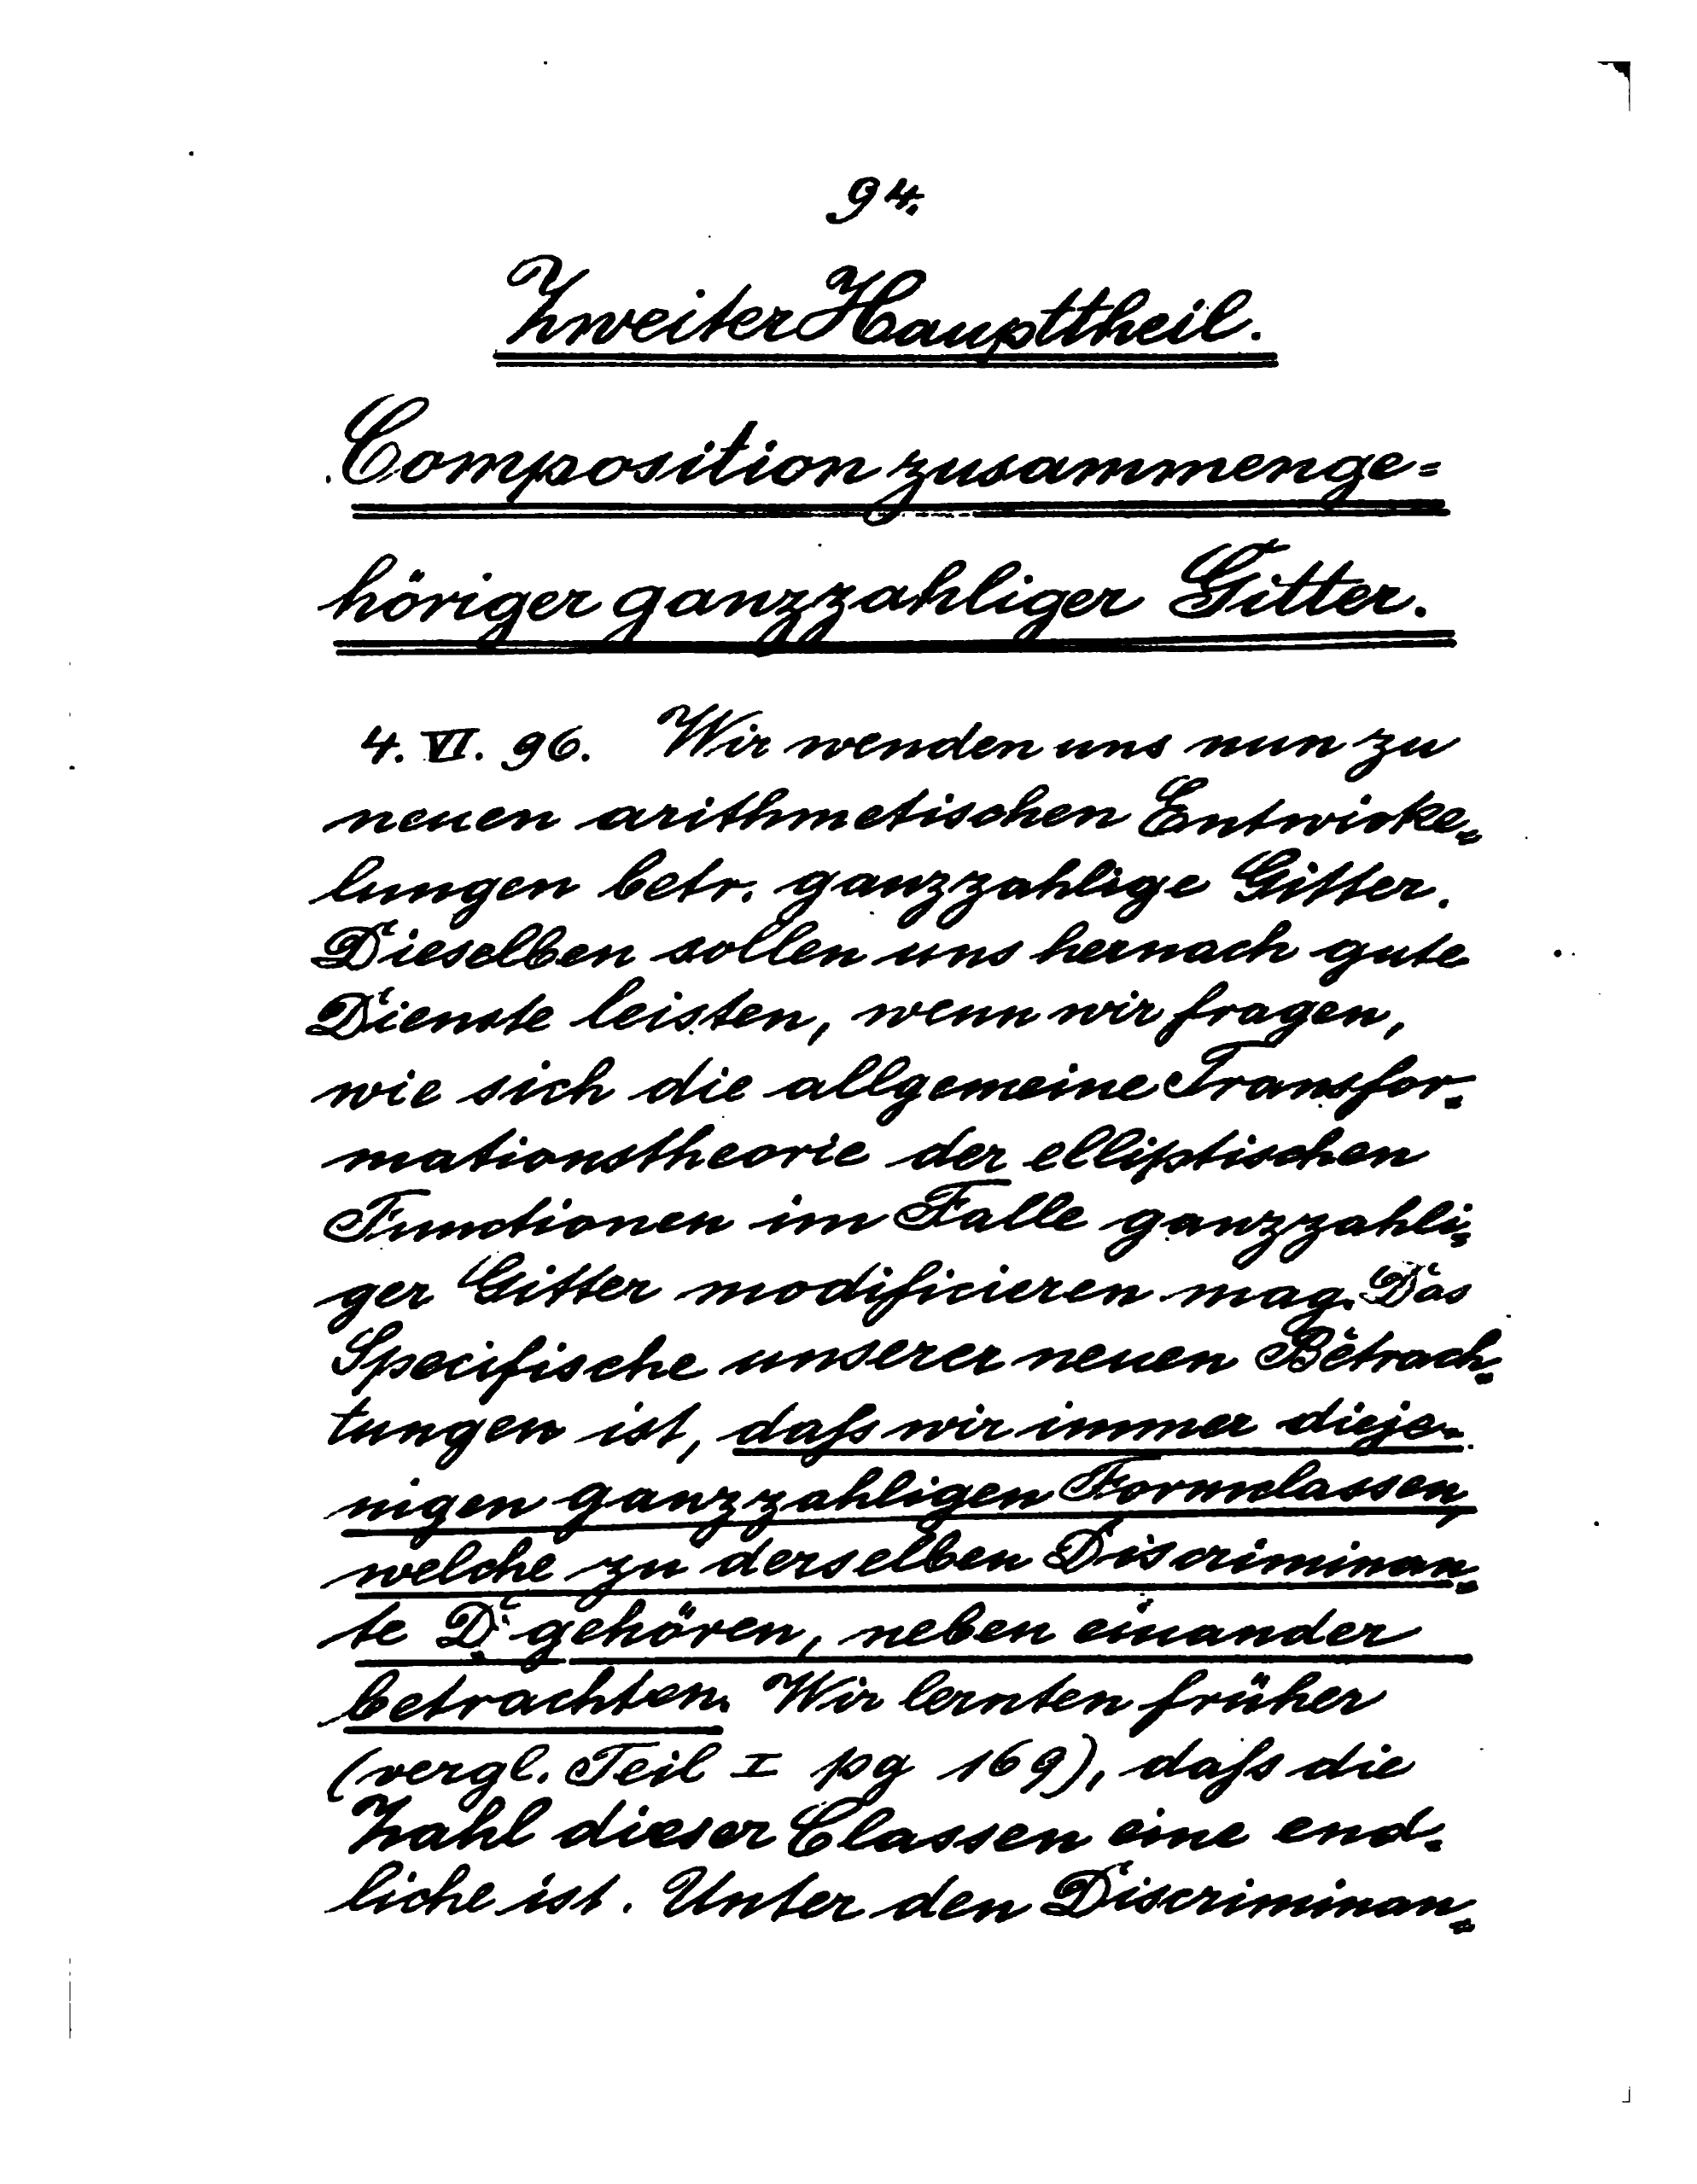 94.
Zweiter Haupttheil.
Composition zusammenge=
höriger ganzzahliger Gitter.
4. VI. 96. Wir wenden uns nun zu
neuen arithmetischen Entwicke=
lungen betr. ganzzahlige Gitter.
Dieselben sollen uns hernach gute
Dienste leisten, wenn wir fragen,
wie sich die allgemeine Transfor=
mationstheorie der elliptischen
Functionen im Falle ganzzahli=
ger Gitter modificieren mag. Das
Specifische unserer neuen Betrach=
tungen ist, daſs wir immer dieje=
nigen ganzzahligen Formclassen,
welche zu derselben Discriminan=
te D gehören, neben einander
betrachten. Wir lernten früher
(vergl. Teil I pg 169), daſs die
Zahl dieser Classen eine end=
liche ist. Unter den Discriminan=